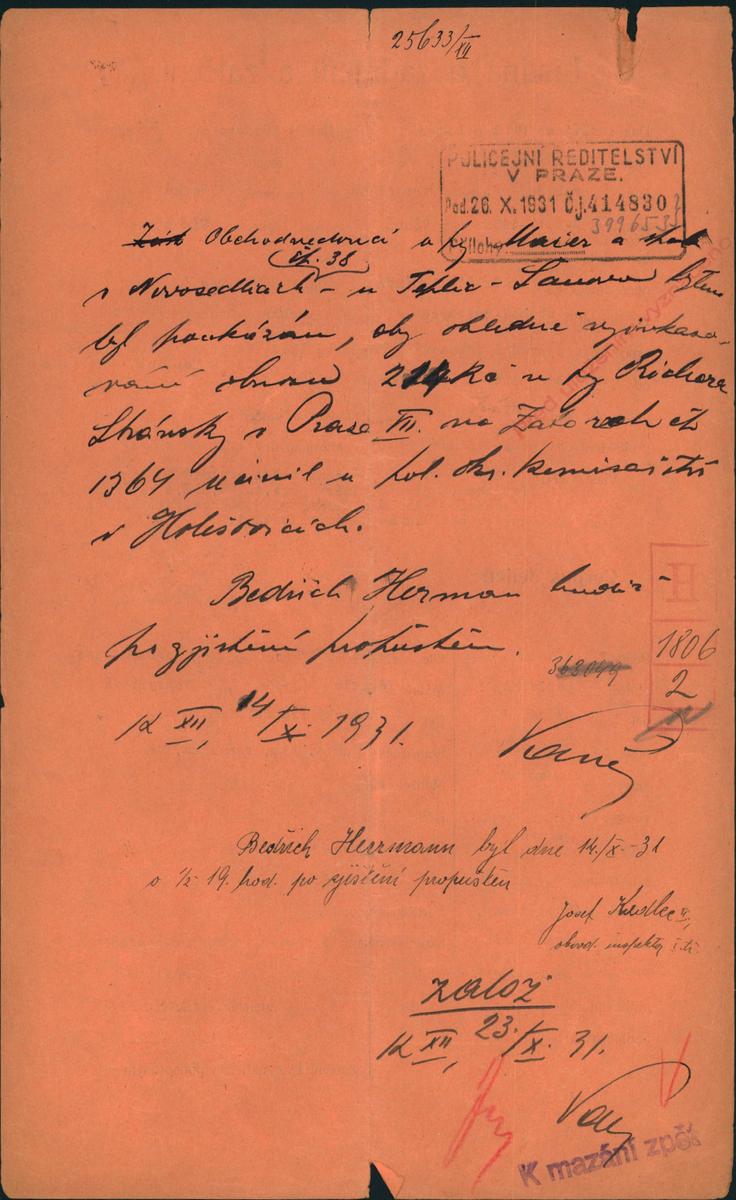 25633/XII
POLICEJNÍ ŘEDITELSTVÍ
V PRAZE.
Pod. 26. X. 1931 Č.j. 414830
Přílohy:
Obchodvedoucí u fy Maier a
čp. 38
v Novosedlicích - u Teplic - Šanova bytem
byl poukázán, aby ohledně vyinkaso-
vání obnosu 214 Kč u fy Richard
Stránský v Praze VII. na Zátorách čp
1364 učinil u pol. okr. komisařství
v Holešovicích.
Bedřich Herman budiž
po zjištění propuštěn.
1806
2
K XII, 14/X. 1931.
Bedřich Herrmann byl dne 14./X.-31
o ½ 19. hod. po zjištění propuštěn
Josef
obvod. inspektor
Založ
K XII, 23./X. 31.
K mazání zpět